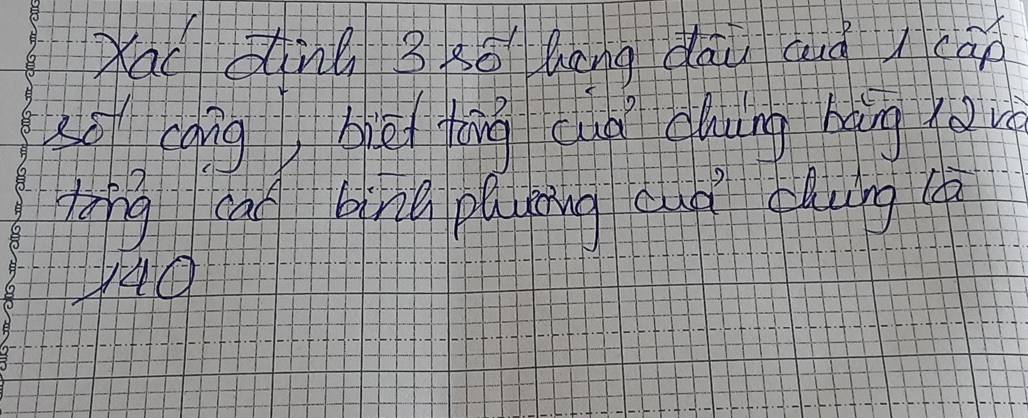 Xác định 3 số hạng đầu của 1 cấp
số cộng, biết tổng của chúng bằng 12 và
tổng các bình phương của chúng là
140